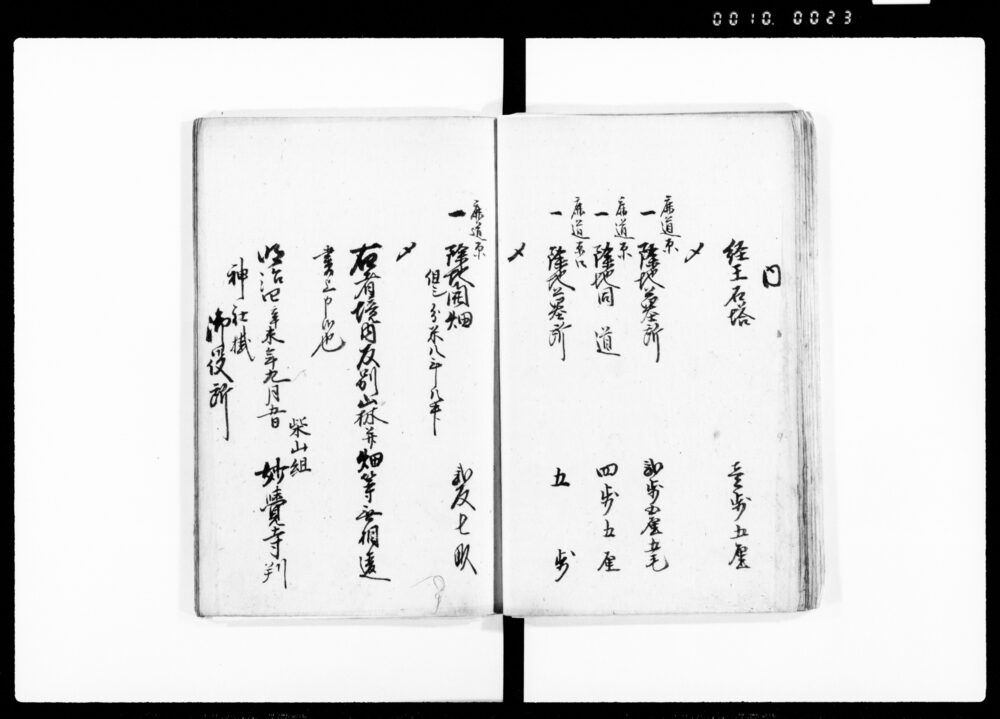 0010.0023
内
経王石塔 壱歩五厘
〆
鹿道原
一 除地墓所 弐歩五厘五毛
鹿道原
一 除地同道 四歩五厘
鹿道原
一 除地墓所 五歩
〆
鹿道原
一 除地開畑 弐反七畝
但シ分米八斗八升
〆
右者境内反別山林并畑等無相違
書上申候也
明治四辛未年九月五日
柴山組
妙覺寺 判
神社掛
御役所